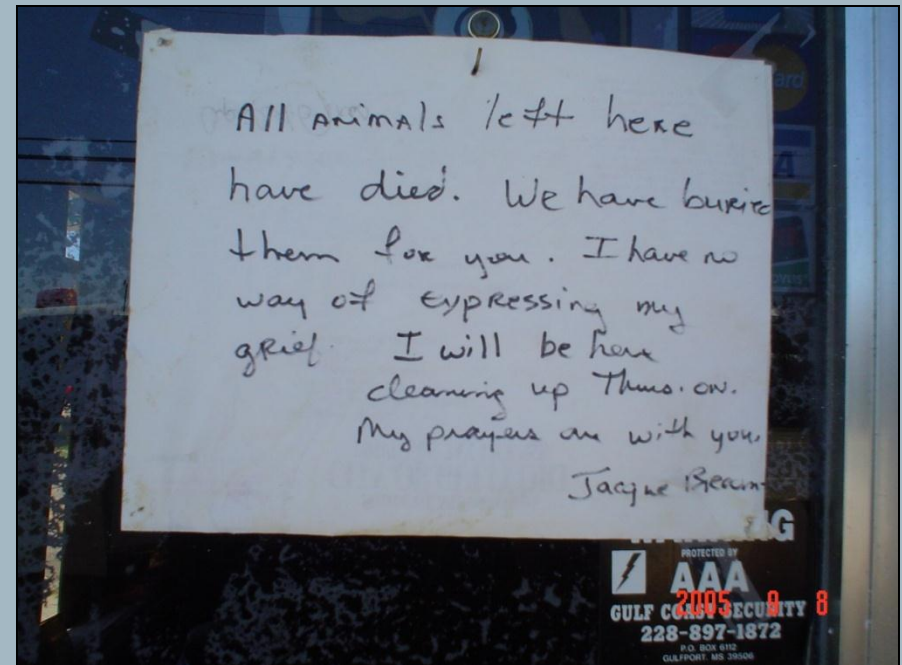 All animals left here
have died. We have buried
them for you. I have no
way of expressing my
grief. I will be here
cleaning up Thurs. on.
My prayers are with you.
Jacque
PROTECTED BY
AAA
GULF COAST SECURITY
228-897-1872
P.O. BOX 6112
GULFPORT, MS 39506
2005 9 8